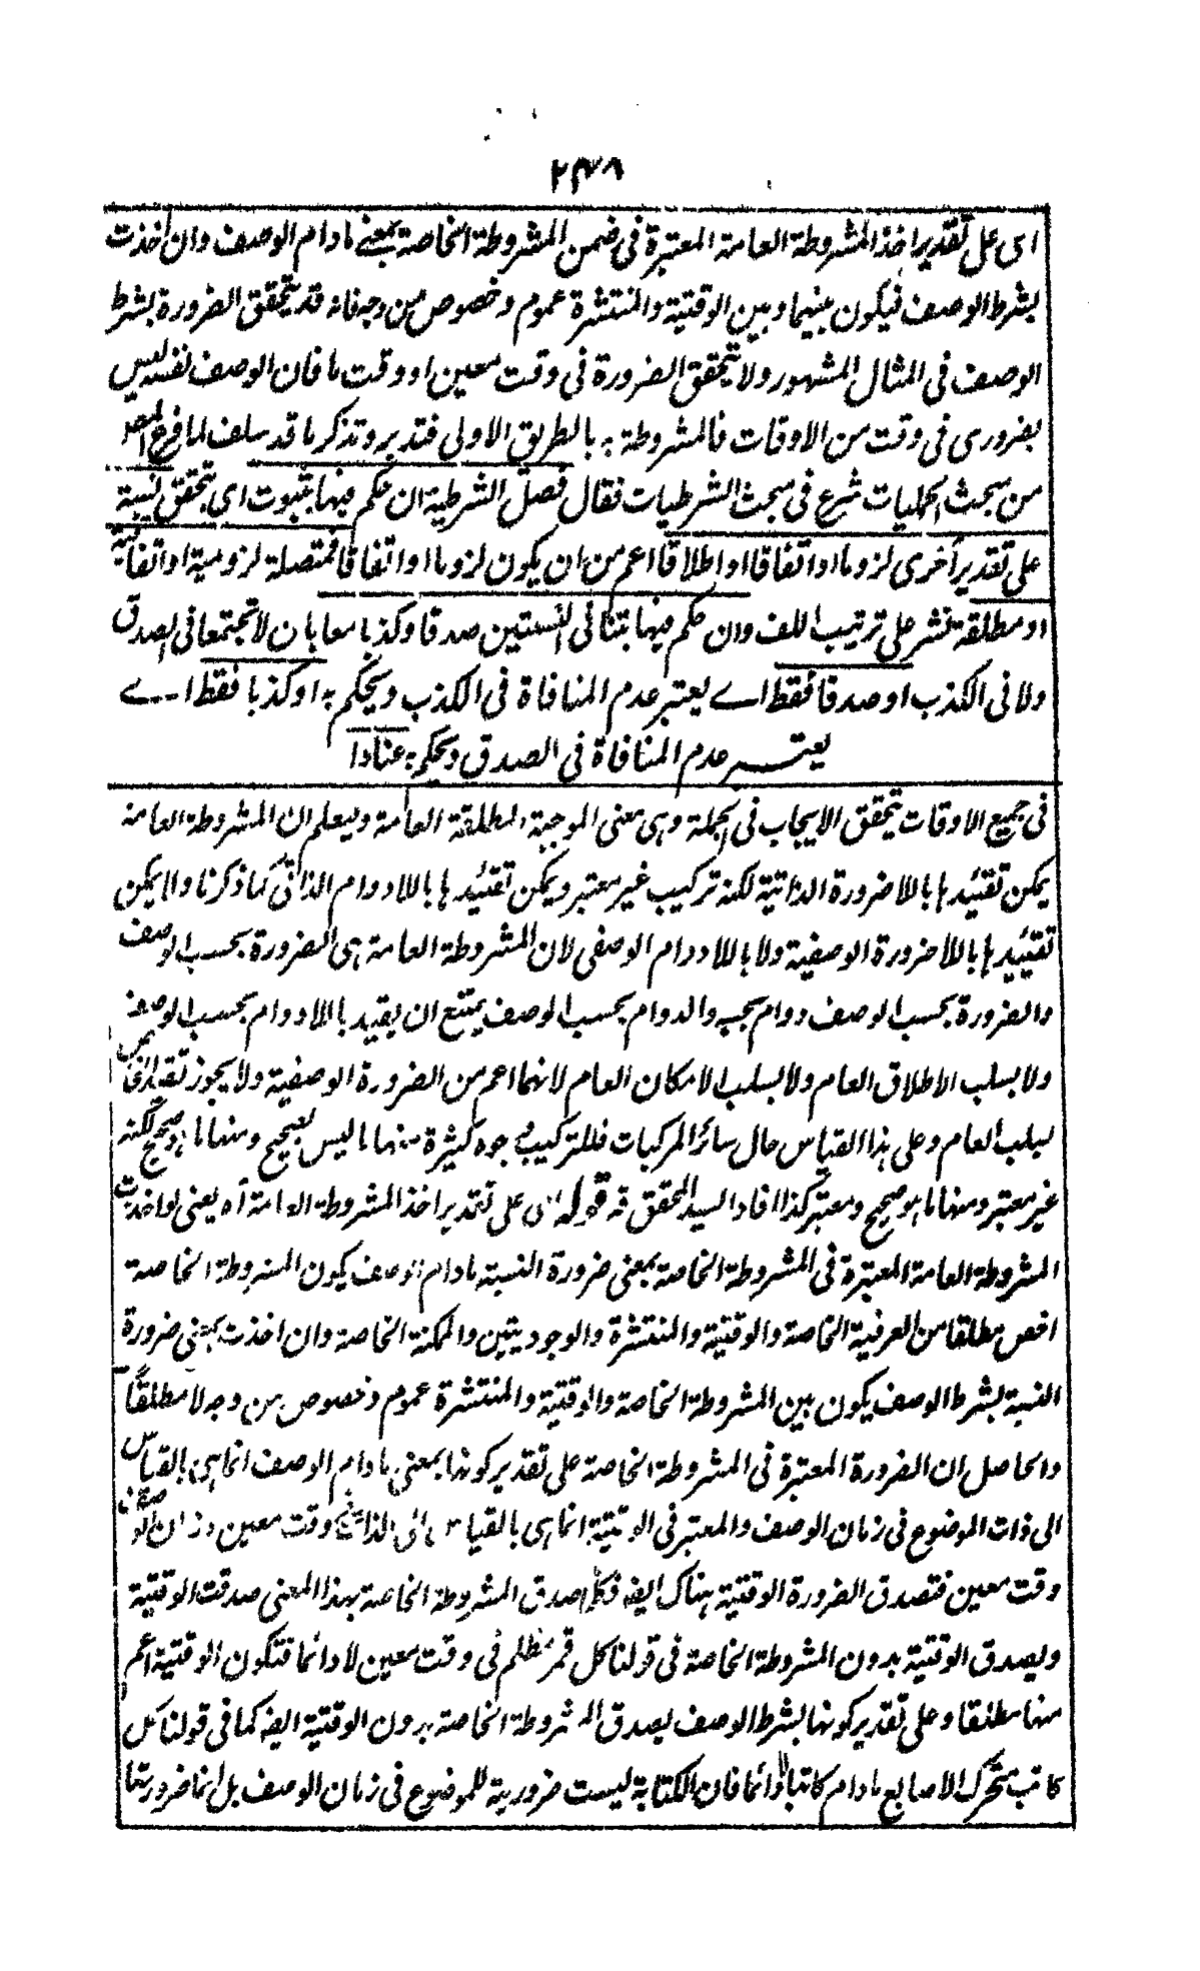 ٢٣٨
اى على تقدير اخذ المشروطة العامة المعتبرة فى ضمن المشروطة الخاصة بمعنے مادام الوصف وان اخذت
بشرط الوصف فيكون بينها وبين الوقتية والمنتشرة عموم وخصوص من وجه فانه قد يتحقق الضرورة بشرط
الوصف فى المثال المشهور ولا يتحقق الضرورة فى وقت معين او وقت ما فان الوصف نفسه ليس
بضرورى فى وقت من الاوقات فالمشروطة به بالطريق الاولى فتدبر وتذكر ما قد سلف لما فرغ المصر
من مبحث الحمليات شرع فى مبحث الشرطيات فقال فصل الشرطية ان حكم فيها بثبوت اى بتحقق نسبة
على تقدير اخرى لزوما او اتفاقا او اطلاقا اعم من ان يكون لزوما او اتفاقا فمتصلة لزومية او اتفاقية
او مطلقة نشر على ترتيب اللف وان حكم فيها بتنافى النسبتين صدقا وكذبا معا بان لا تجتمعا فى الصدق
ولا فى الكذب او صدقا فقط اے يعتبر عدم المنافاة فى الكذب ويحكم به او كذبا فقط اے
يعتبر عدم المنافاة فى الصدق ويحكم به عنادا
فى جميع الاوقات يتحقق الايجاب فى الجملة وهى معنى الموجبة المطلقة العامة وليعلم ان المشروطة العامة
يمكن تقييدها باللاضرورة الذاتية لكنه تركيب غير معتبر ويمكن تقييدها باللادوام الذاتى كما ذكرنا ولا يمكن
تقييدها باللاضرورة الوصفية ولا باللادوام الوصفى لان المشروطة العامة هى الضرورة بحسب الوصف
والضرورة بحسب الوصف دوام بحسبه والدوام بحسب الوصف يمتنع ان يقيد باللادوام بحسب الوصف
ولا بسلب الاطلاق العام ولا بسلب الامكان العام لانهما اعم من الضرورة الوصفية ولا يجوز تقييد
بسلب العام وعلى هذا القياس حال سائر المركبات فللتركيب وجوه كثيرة منها ما ليس بصحيح ومنها ما هو صحيح لكنه
غير معتبر ومنها ما هو صحيح ومعتبر كذا افاد السيد المحقق قه قوله اى على تقدير اخذ المشروطة العامة آه يعنى لو اخذت
المشروطة العامة المعتبرة فى المشروطة الخاصة بمعنى ضرورة النسبة مادام الوصف يكون المشروطة الخاصة
اخص مطلقا من العرفية الخاصة والوقتية والمنتشرة والوجوديتين والممكنة الخاصة وان اخذت بمعنى ضرورة
النسبة بشرط الوصف يكون بين المشروطة الخاصة والوقتية والمنتشرة عموم وخصوص من وجه لا مطلقاً
والحاصل ان الضرورة المعتبرة فى المشروطة الخاصة على تقدير كونها بمعنى مادام الوصف انما هى بالقياس
الى ذات الموضوع فى زمان الوصف والمعتبر فى الوقتية انما هى بالقياس الى الذات فى وقت معين وزمان الوصف
وقت معين فتصدق الضرورة الوقتية هناك ايضه فكلما صدق المشروطة الخاصة بهذا المعنى صدقت الوقتية
ويصدق الوقتية بدون المشروطة الخاصة فى قولنا كل قمر مظلم فى وقت معين لا دائما فتكون الوقتية اعم
منها مطلقا وعلى تقدير كونها بشرط الوصف يصدق المشروطة الخاصة بدون الوقتية ايضه كما فى قولنا كل
كاتب متحرك الاصابع مادام كاتبا لا دائما فان الكتابة ليست ضرورية للموضوع فى زمان الوصف بل انما ضرورتها